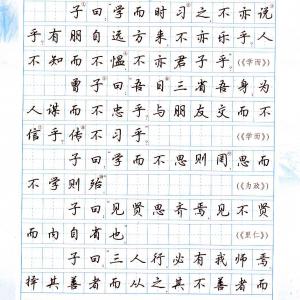 子曰学而时习之不亦说
乎有朋自远方来不亦乐乎人
不知而不愠不亦君子乎(《学而》)
曾子曰吾日三省吾身为
人谋而不忠乎与朋友交而不
信乎传不习乎(《学而》)
子曰学而不思则罔思而
不学则殆(《为政》)
子曰见贤思齐焉见不贤
而内自省也(《里仁》)
子曰三人行必有我师焉
择其善者而从之其不善者而